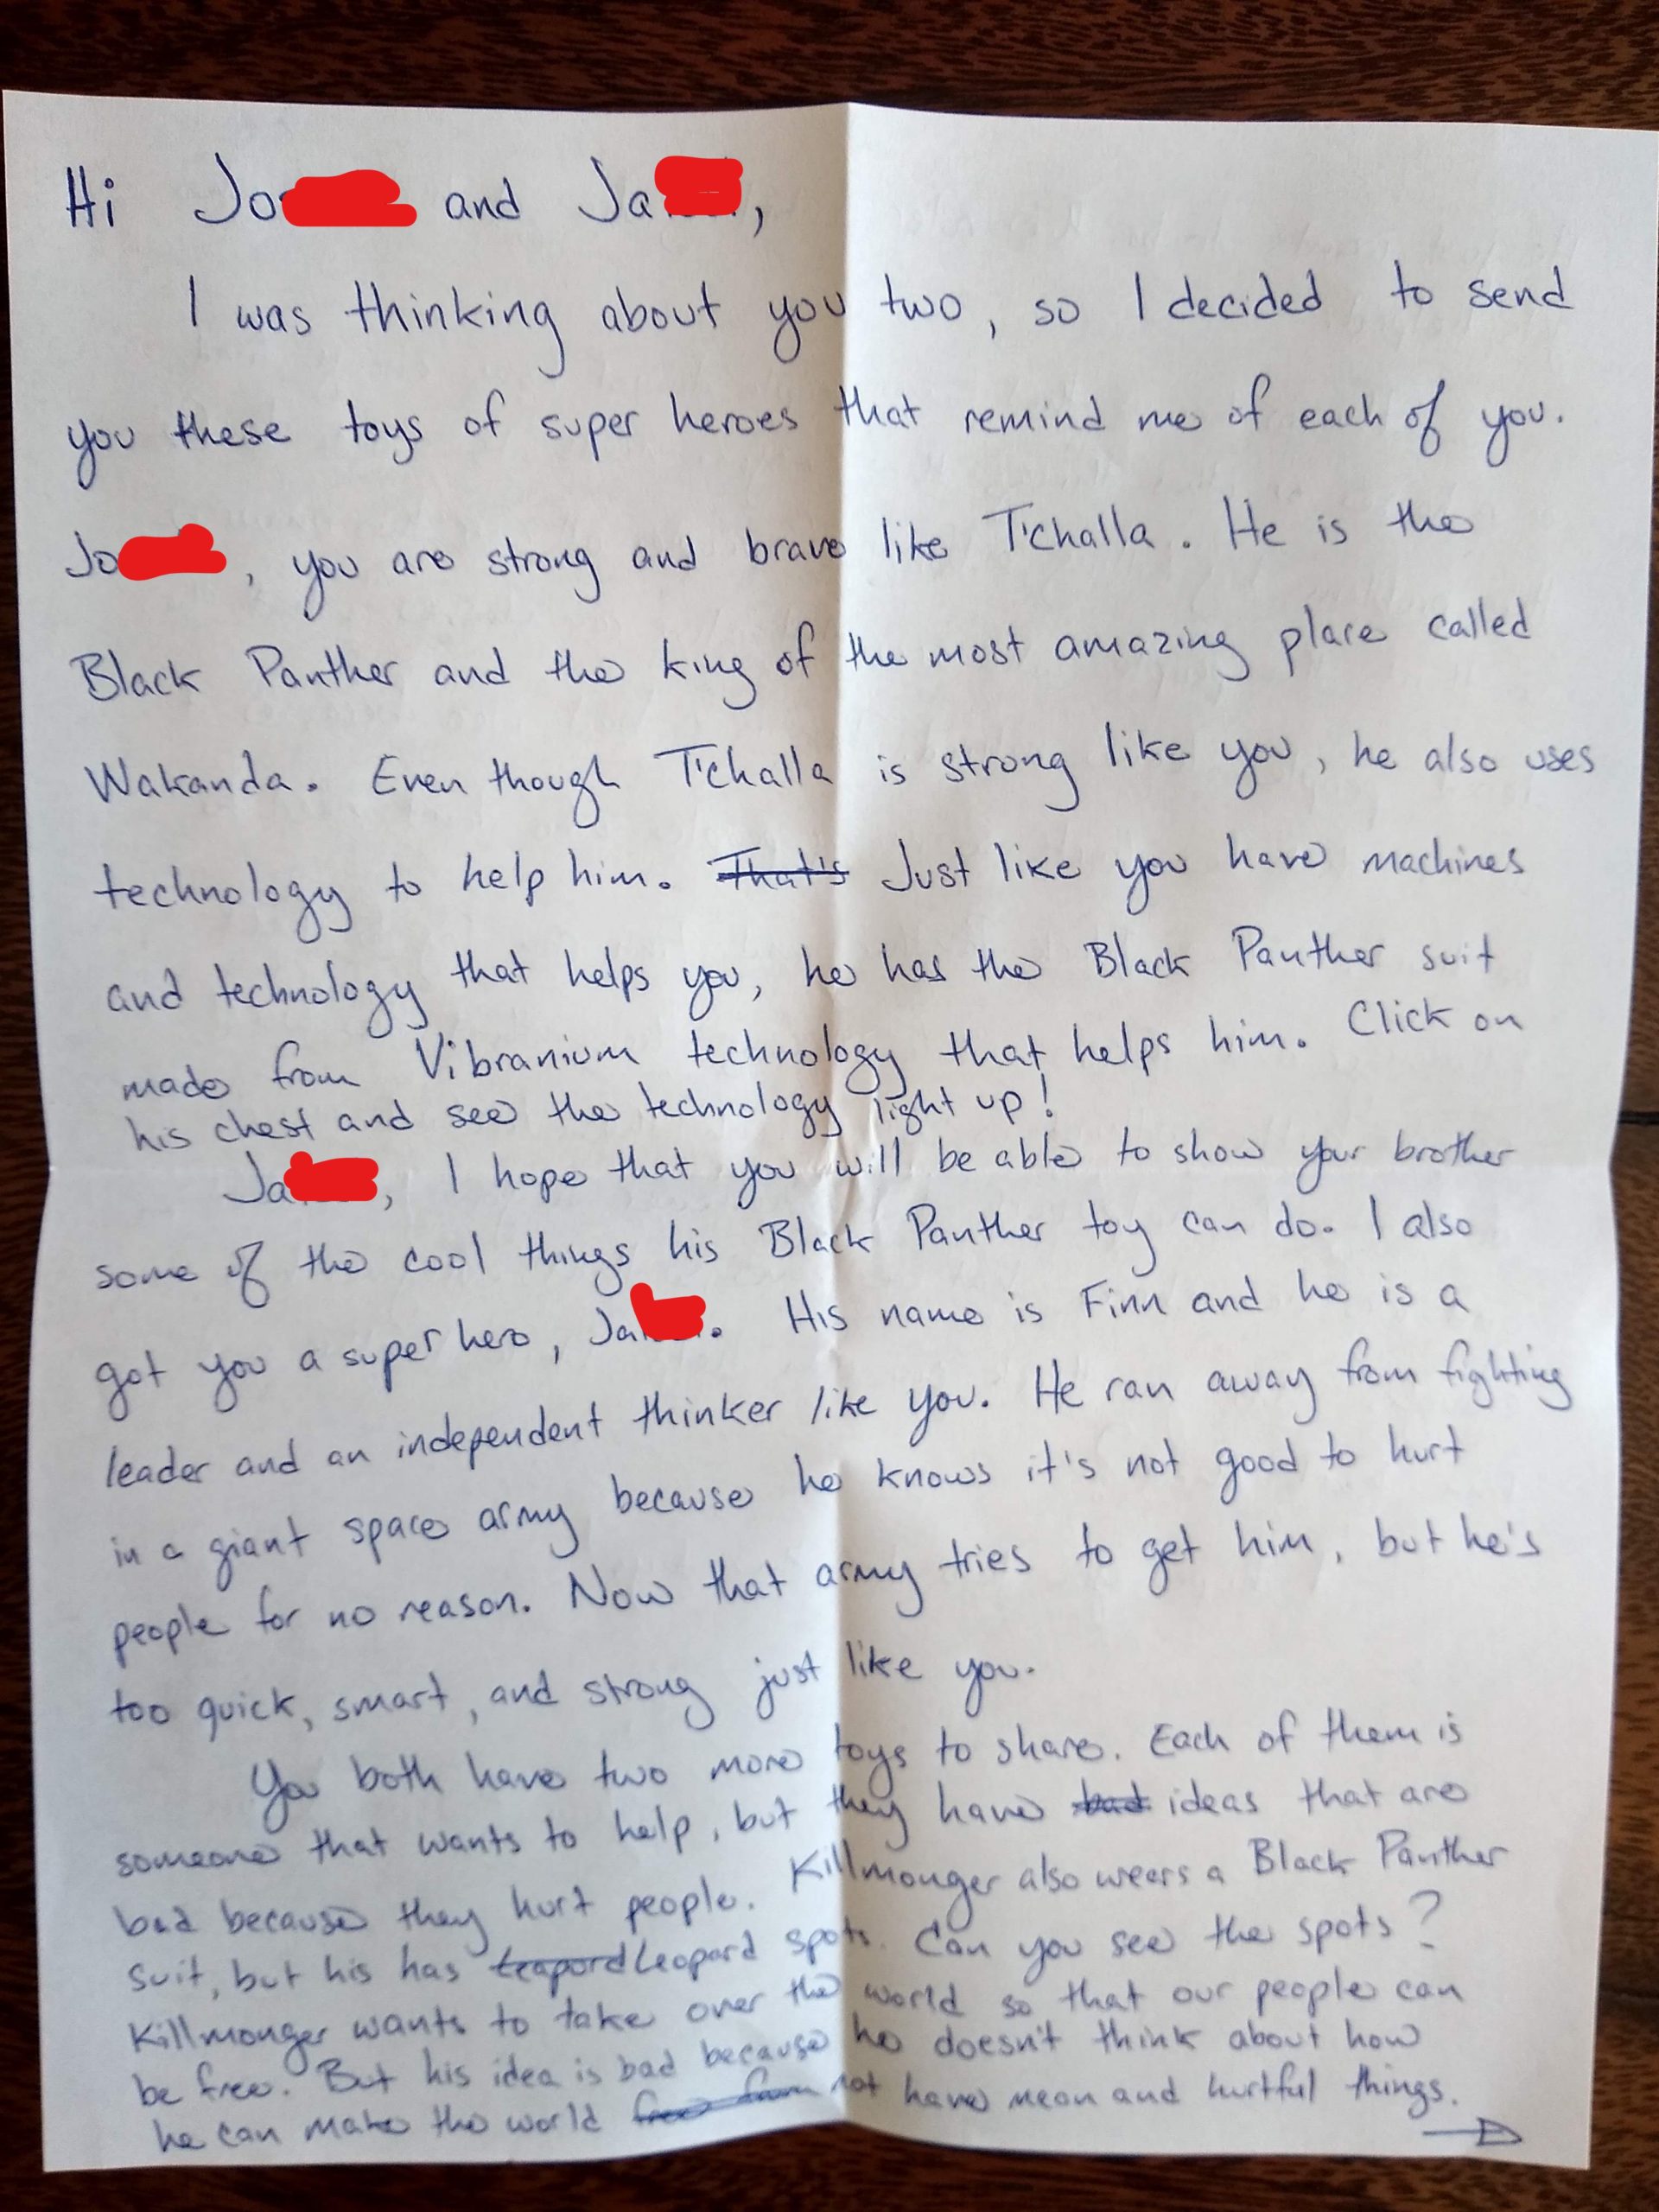 Hi Jo and Ja,
I was thinking about you two, so I decided to send
you these toys of super heroes that remind me of each of you.
Jo, you are strong and brave like T'Challa. He is the
Black Panther and the king of the most amazing place called
Wakanda. Even though T'Challa is strong like you, he also uses
technology to help him. That's Just like you have machines
and technology that helps you, he has the Black Panther suit
made from Vibranium technology that helps him. Click on
his chest and see the technology light up!
Ja, I hope that you will be able to show your brother
some of the cool things his Black Panther toy can do. I also
got you a super hero, Ja. His name is Finn and he is a
leader and an independent thinker like you. He ran away from fighting
in a giant space army because he knows it's not good to hurt
people for no reason. Now that army tries to get him, but he's
too quick, smart, and strong just like you.
You both have two more toys to share. Each of them is
someone that wants to help, but they have bad ideas that are
bad because they hurt people. Killmonger also wears a Black Panther
suit, but his has leapord Leopard spots. Can you see the spots?
Killmonger wants to take over the world so that our people can
be free. But his idea is bad because he doesn't think about how
he can make the world free from not have mean and hurtful things.